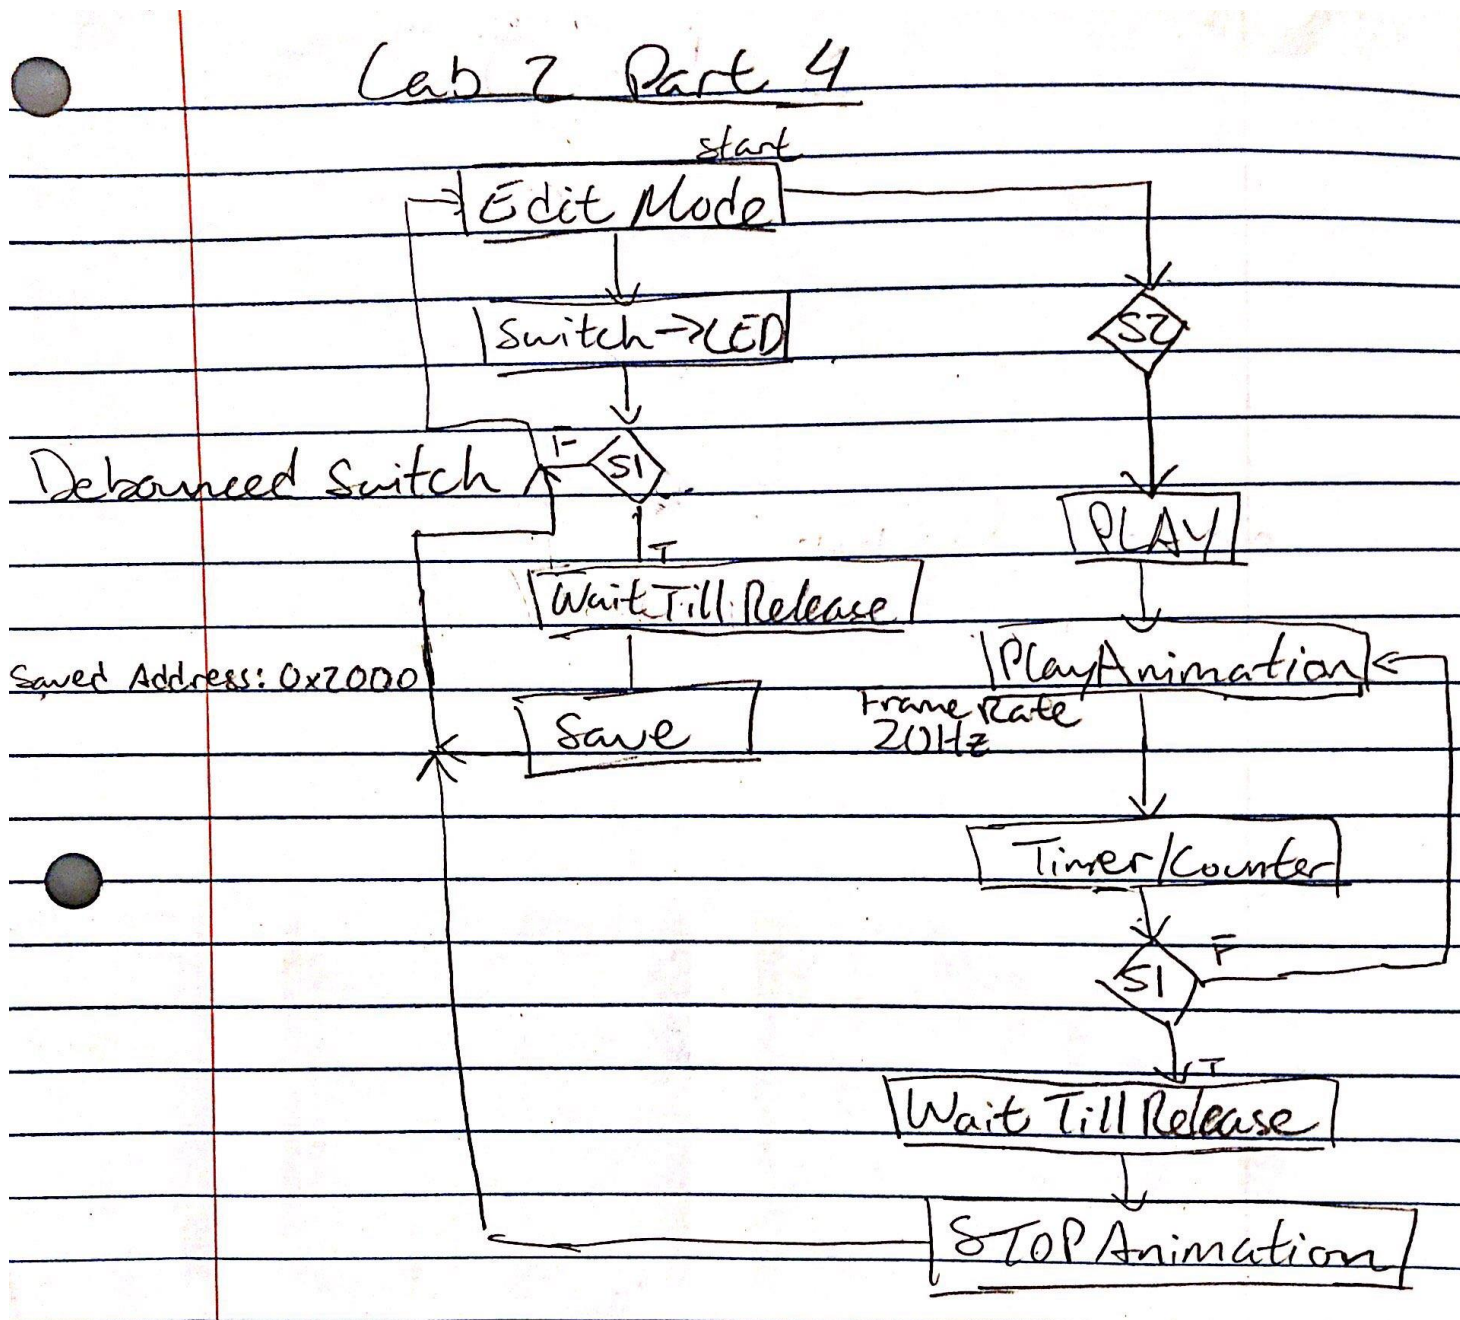 Lab 2 Part 4
start
Edit Mode
Switch->LED
S2
F
S1
Debounced Switch
PLAY
T
Wait Till Release
PLayAnimation
Saved Address: 0x2000
Frame Rate
20Hz
Save
Timer/Counter
F
S1
T
Wait Till Release
STOP Animation